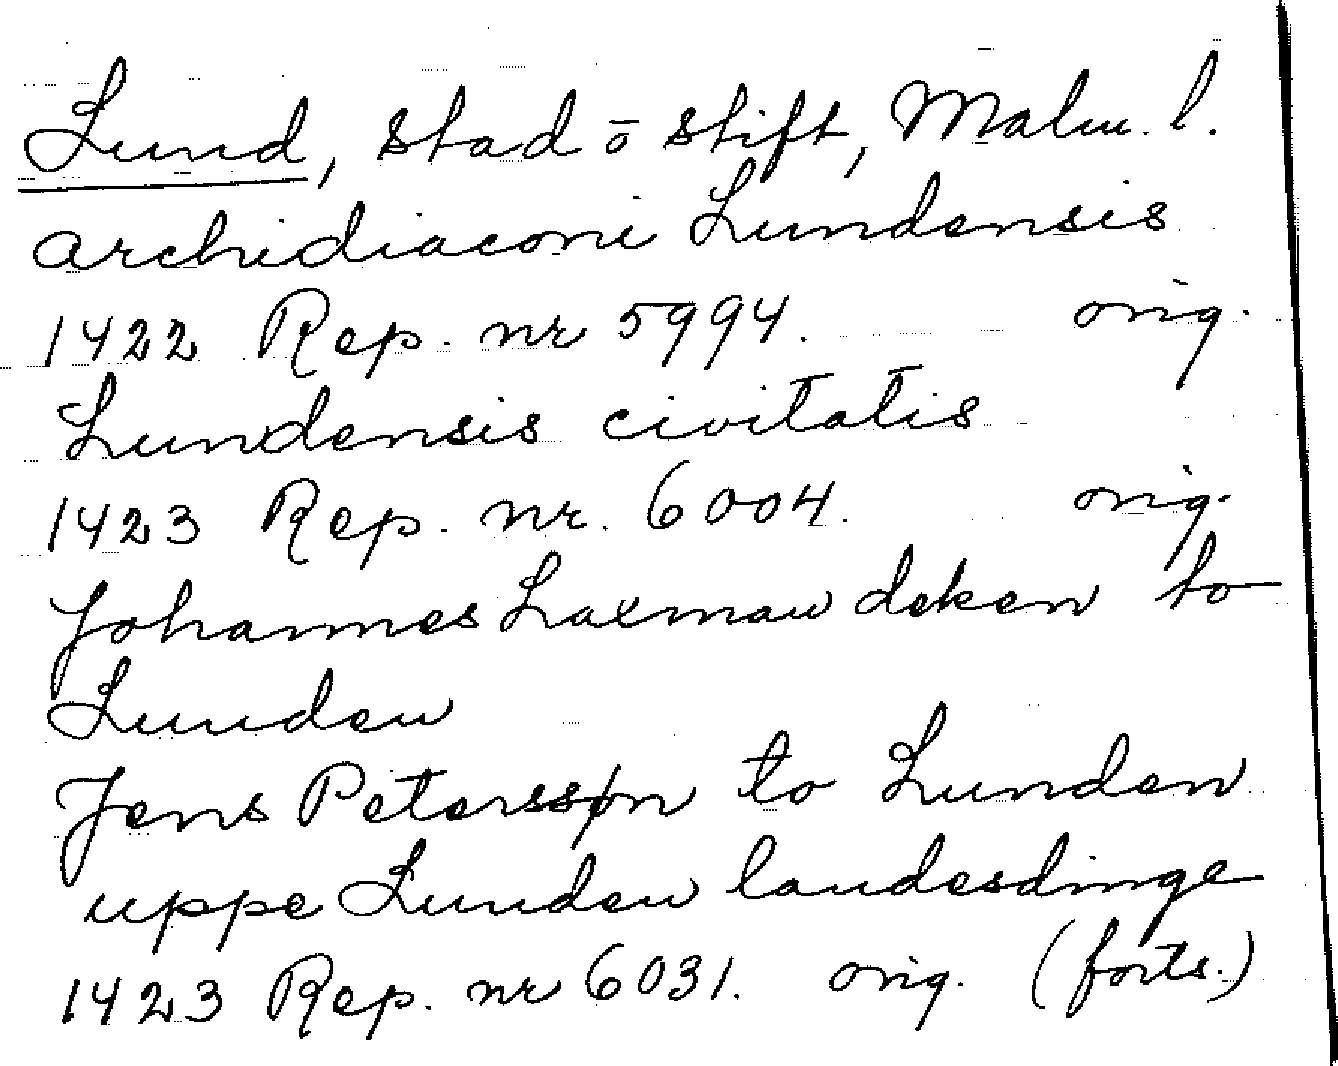 Lund, stad ō stift, Malm. l.
archidiaconi Lundensis
1422 Rep. nr 5994. orig.
Lundensis civitatis
1423 Rep. nr. 6004. orig.
Johannes Laxman deken to
Lunden
Jens Peterssøn to Lunden
uppe Lunden landesdinge
1423 Rep. nr 6031. orig. (forts.)